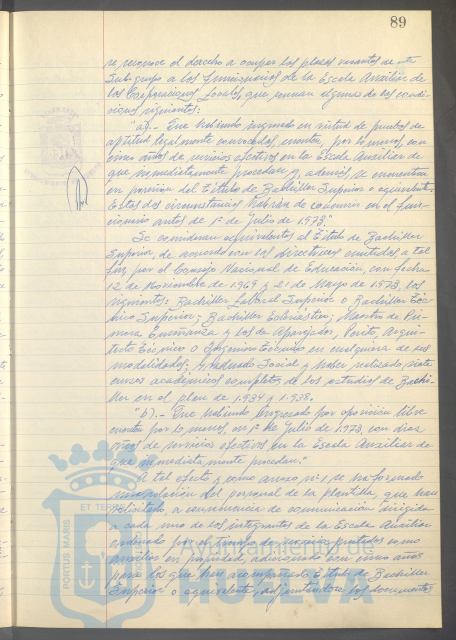 89
se reconoce el derecho a ocupar las plazas vacantes de este
Subgrupo a los funcionarios de la Escala Auxiliar de
las Corporaciones Locales, que reunan alguna de las condi-
ciones siguientes:
"a).- Que habiendo ingresado en virtud de pruebas de
aptitud legalmente convocadas, cuenten, por lo menos, con
cinco años de servicios efectivos en la Escala Auxiliar de
que inmediatamente procedan y, además, se encuentren
en posesión del Título de Bachiller Superior o equivalente.
Estas dos circunstancias habrán de concurrir en el fun-
cionario antes de 1º de Julio de 1973"
Se consideran equivalentes al Título de Bachiller
Superior, de acuerdo con las directrices emitidas a tal
fin, por el Consejo Nacional de Educación, con fecha
12 de Noviembre de 1969 y 21 de Mayo de 1973, los
siguientes: Bachiller Laboral Superior o Bachiller Téc-
nico Superior; Bachiller Eclesiástico; Maestro de Pri-
mera Enseñanza y los de Aparejador, Perito, Arqui-
tecto Técnico o Ingeniero Técnico en cualquiera de sus
modalidades; Graduado Social y haber realizado siete
cursos académicos completos de los estudios de Bachi-
ller en el plan de 1.934 y 1.938.
"b).- Que habiendo ingresado por oposición libre
cuenten por lo menos, en 1º de Julio de 1973, con diez
años de servicios efectivos en la Escala Auxiliar de
que inmediatamente procedan."
A tal efecto y como anexo nº 1 se ha formado
relación del personal de la plantilla, que han
solicitado a consecuencia de comunicación dirigida
a cada uno de los integrantes de la Escala Auxiliar
ordenado por el tiempo de servicios prestados como
auxiliar en propiedad, adicionando con cinco años
para los que han acompañado Título de Bachiller
Superior o equivalente, adjuntándose los documentos
PORTUS MARIS
ET TERRAE
Ayuntamiento de
HUELVA